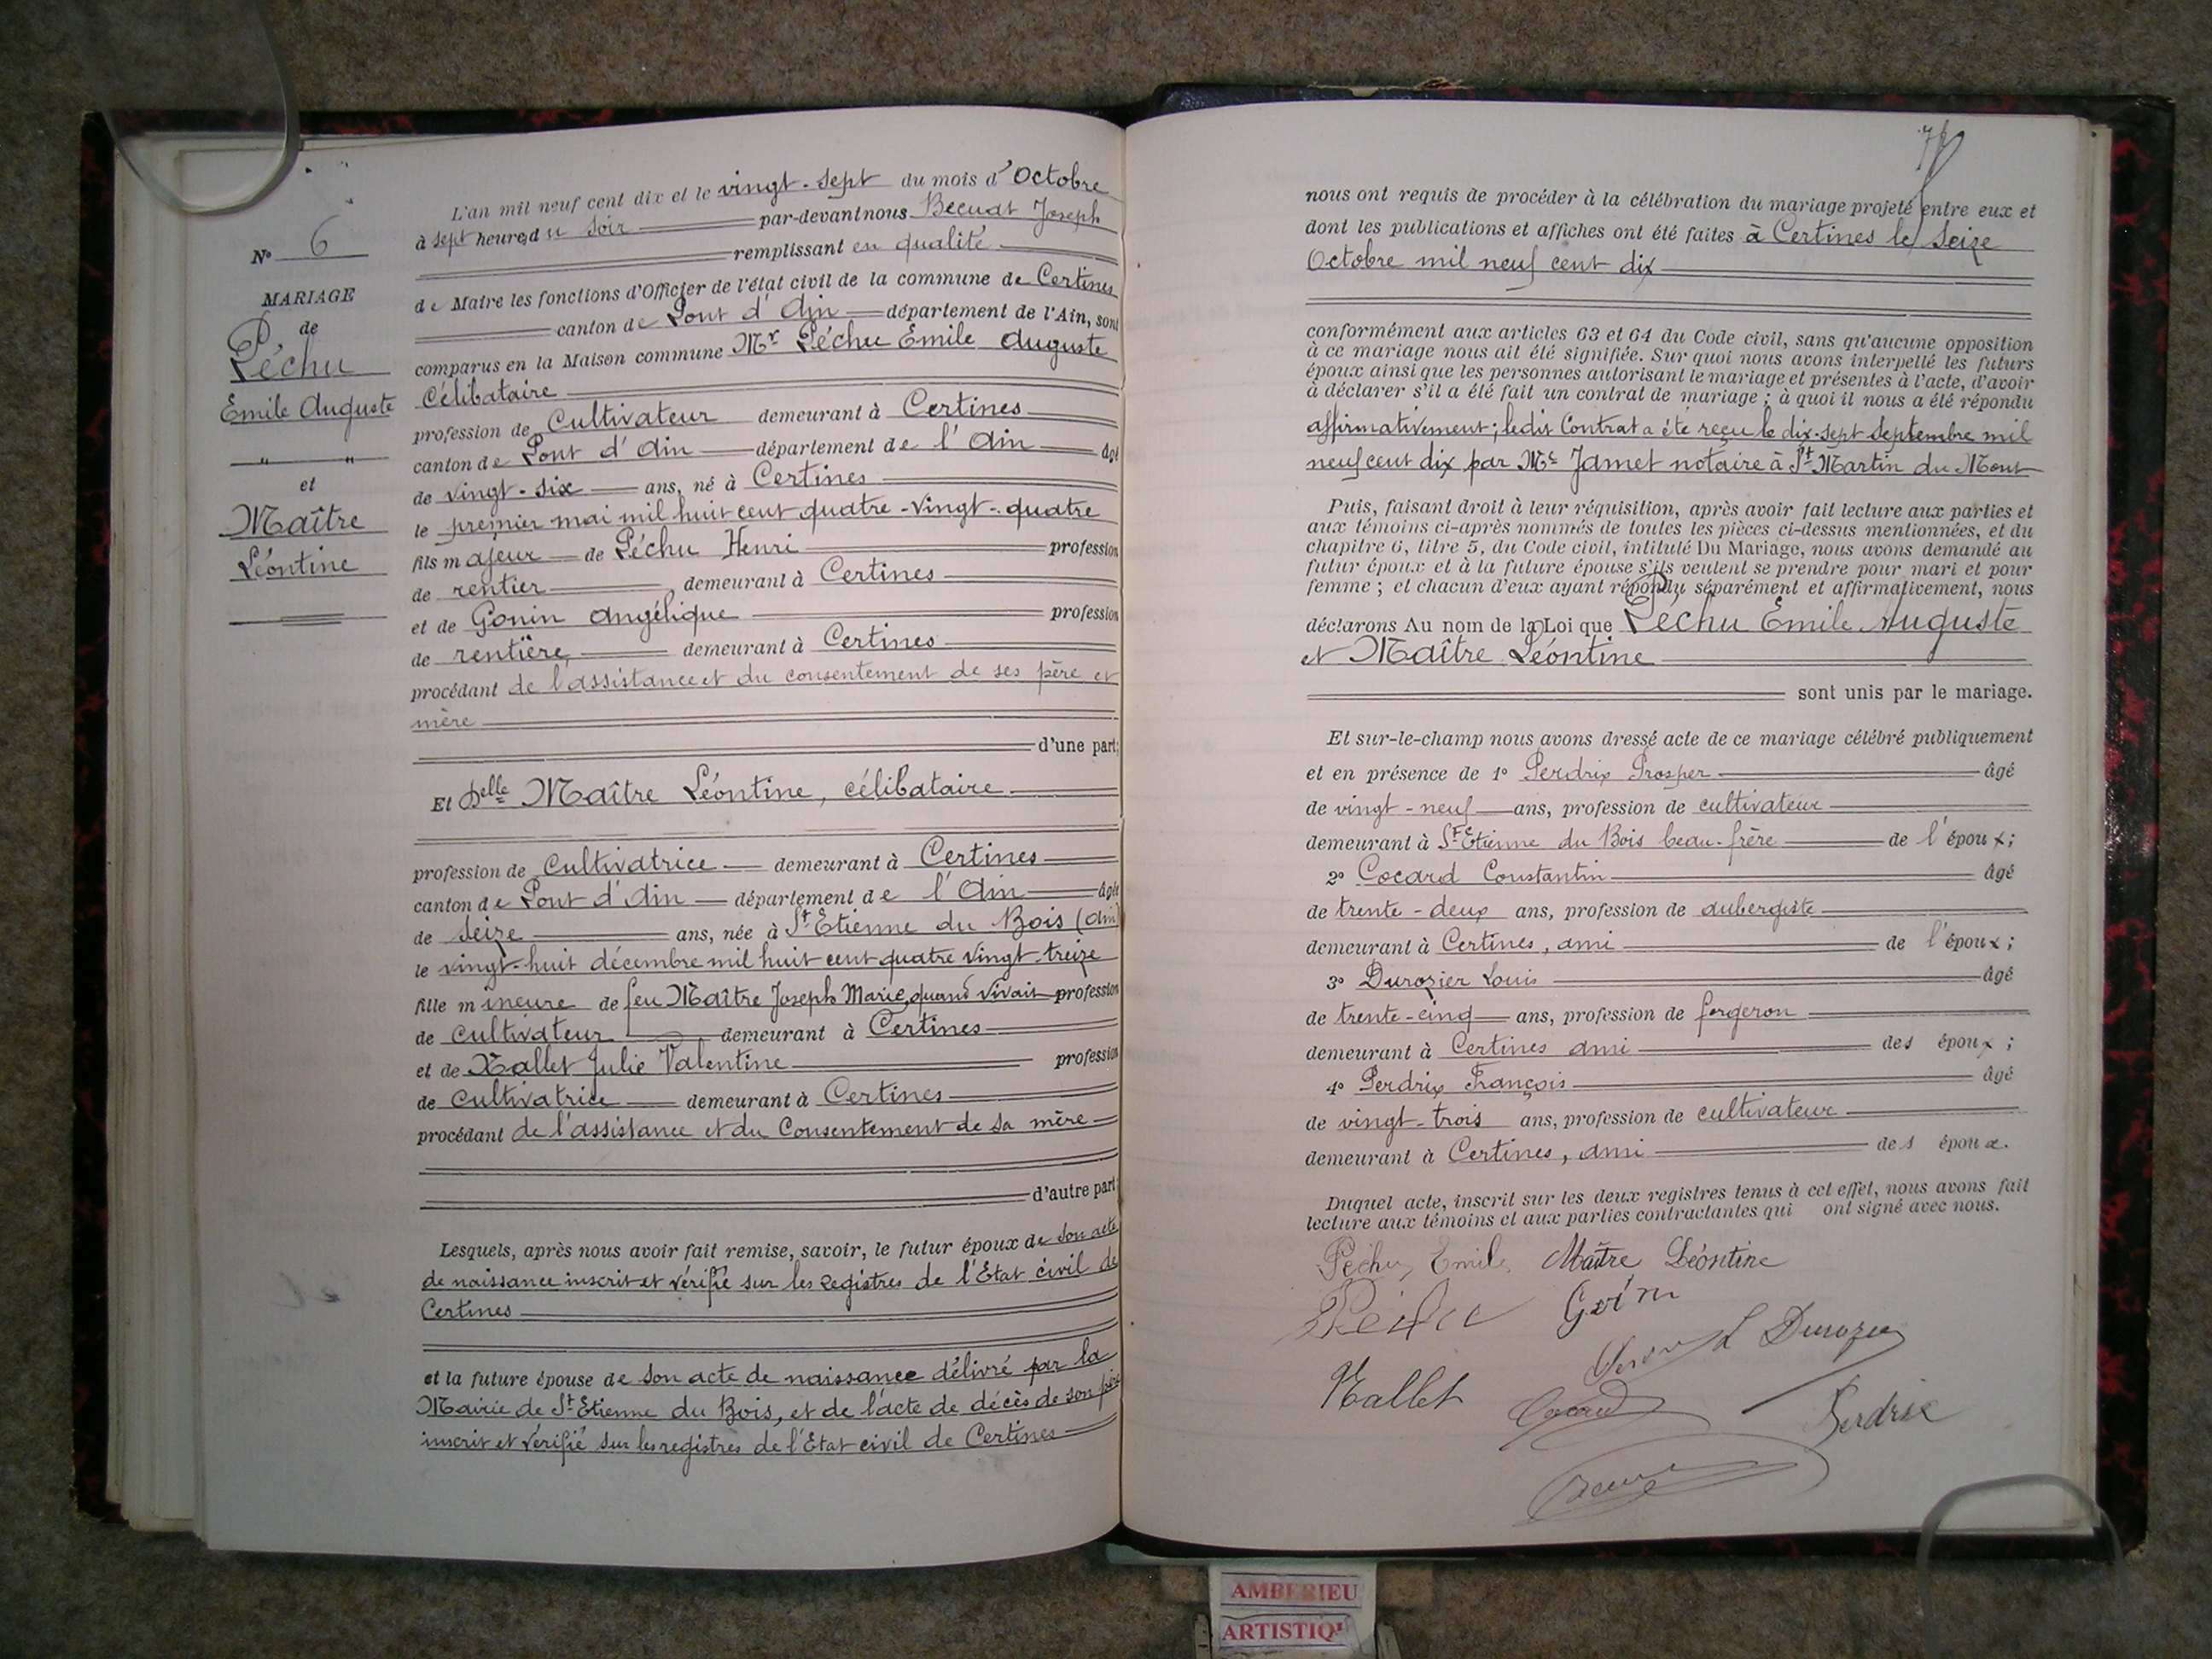 N° 6
MARIAGE
de
Péchu
Emile Auguste
" "
et
Maître
Léontine
L'an mil neuf cent dix et le vingt-sept du mois d'Octobre
à sept heures du soir par-devant nous Becuat Joseph
remplissant en qualité
de Maire les fonctions d'Officier de l'état civil de la commune de Certines
canton de Pont d'Ain département de l'Ain, sont
comparus en la Maison commune Mr Péchu Emile Auguste
Célibataire
profession de Cultivateur demeurant à Certines
canton de Pont d'Ain département de l'Ain âgé
de vingt-six ans, né à Certines
le premier mai mil huit cent quatre-vingt-quatre
fils majeur de Péchu Henri profession
de rentier demeurant à Certines
et de Gonin Angélique profession
de rentière demeurant à Certines
procédant de l'assistance et du consentement de ses père et
mère
d'une part;
Et Delle Maître Léontine, célibataire
profession de Cultivatrice demeurant à Certines
canton de Pont d'Ain département de l'Ain âgée
de seize ans, née à St Etienne du Bois (Ain)
le vingt-huit décembre mil huit cent quatre vingt-treize
fille mineure de feu Maître Joseph Marie, quand vivait profession
de cultivateur demeurant à Certines
et de Nallet Julie Valentine profession
de Cultivatrice demeurant à Certines
procédant de l'assistance et du Consentement de sa mère
d'autre part;
Lesquels, après nous avoir fait remise, savoir, le futur époux de son acte
de naissance inscrit et vérifié sur les registres de l'Etat civil de
Certines
et la future épouse de son acte de naissance délivré par la
Mairie de St Etienne du Bois, et de l'acte de décès de son père
inscrit et vérifié sur les registres de l'Etat civil de Certines
nous ont requis de procéder à la célébration du mariage projeté entre eux et
dont les publications et affiches ont été faites à Certines le seize
Octobre mil neuf cent dix
conformément aux articles 63 et 64 du Code civil, sans qu'aucune opposition
à ce mariage nous ait été signifiée. Sur quoi nous avons interpellé les futurs
époux ainsi que les personnes autorisant le mariage et présentes à l'acte, d'avoir
à déclarer s'il a été fait un contrat de mariage ; à quoi il nous a été répondu
affirmativement; ledit Contrat a été reçu le dix-sept Septembre mil
neuf cent dix par Me Jamet notaire à St Martin du Mont
Puis, faisant droit à leur réquisition, après avoir fait lecture aux parties et
aux témoins ci-après nommés de toutes les pièces ci-dessus mentionnées, et du
chapitre 6, titre 5, du Code civil, intitulé Du Mariage, nous avons demandé au
futur époux et à la future épouse s'ils veulent se prendre pour mari et pour
femme ; et chacun d'eux ayant répondu séparément et affirmativement, nous
déclarons Au nom de la Loi que Péchu Emile Auguste
et Maître Léontine
sont unis par le mariage.
Et sur-le-champ nous avons dressé acte de ce mariage célébré publiquement
et en présence de 1° Perdrix Prosper âgé
de vingt-neuf ans, profession de cultivateur
demeurant à St Etienne du Bois beau-frère de l'époux;
2° Cocard Constantin âgé
de trente-deux ans, profession de aubergiste
demeurant à Certines, ami de l'époux;
3° Durozier Louis âgé
de trente-cinq ans, profession de forgeron
demeurant à Certines ami des époux;
4° Perdrix François âgé
de vingt-trois ans, profession de cultivateur
demeurant à Certines, ami des époux.
Duquel acte, inscrit sur les deux registres tenus à cet effet, nous avons fait
lecture aux témoins et aux parties contractantes qui ont signé avec nous.
Péchu Emile Maître Léontine
L Durozier
Nallet Cocard Perdrix
AMBERIEU
ARTISTIQ